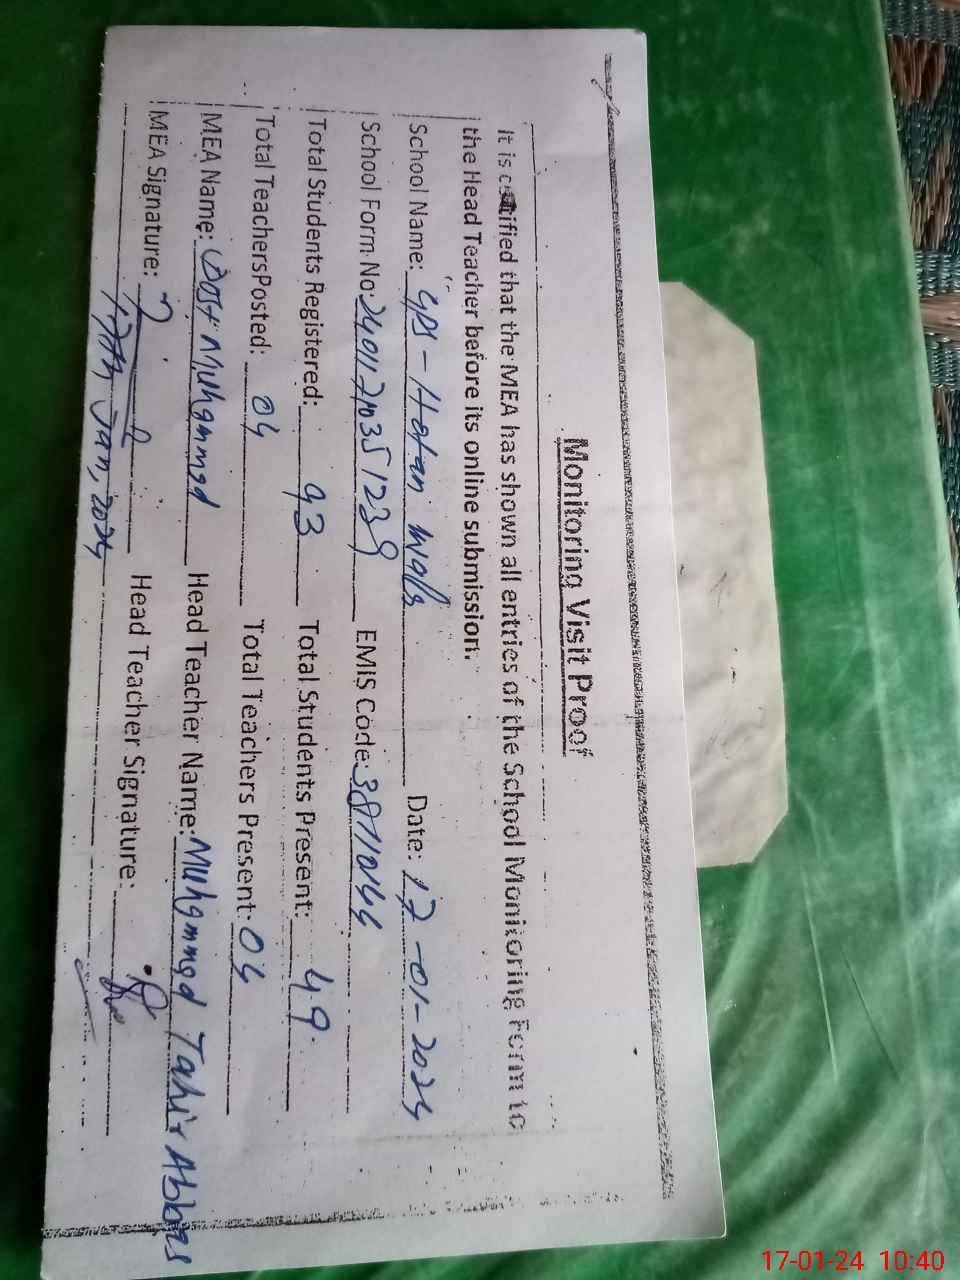 Monitoring Visit Proof
It is certified that the MEA has shown all entries of the School Monitoring Form to
the Head Teacher before its online submission.
School Name: GPS - Hotan Walls Date: 17-01-2024
School Form No: 2401170351239 EMIS Code: 3811044
Total Students Registered: 93 Total Students Present: 49
Total TeachersPosted: 04 Total Teachers Present: 04
MEA Name: Dost Muhammad Head Teacher Name: Muhammad Tahir Abbas
MEA Signature: Head Teacher Signature:
17th Jan, 2024
17-01-24 10:40